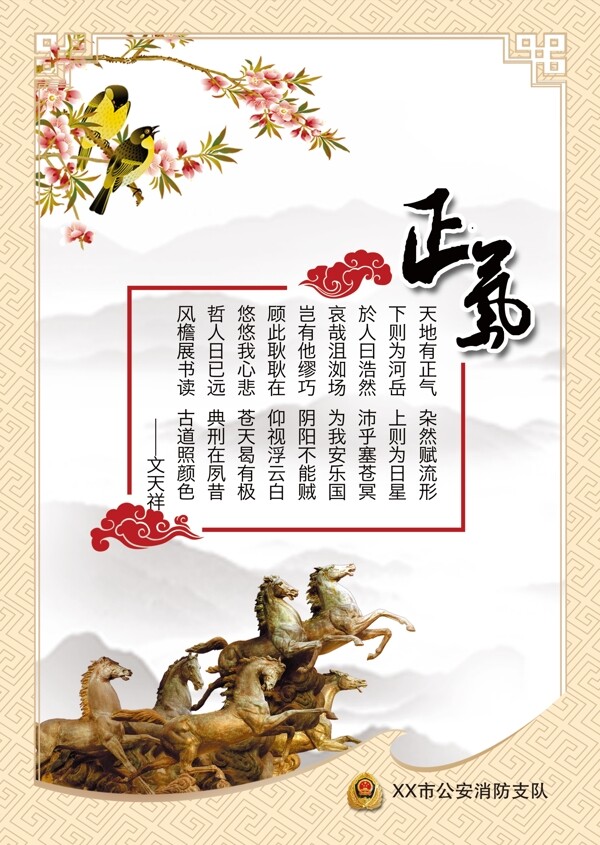 正氣
天地有正气 杂然赋流形
下则为河岳 上则为日星
於人曰浩然 沛乎塞苍冥
哀哉沮洳场 为我安乐国
岂有他缪巧 阴阳不能贼
顾此耿耿在 仰视浮云白
悠悠我心悲 苍天曷有极
哲人日已远 典刑在夙昔
风檐展书读 古道照颜色
——文天祥
XX市公安消防支队